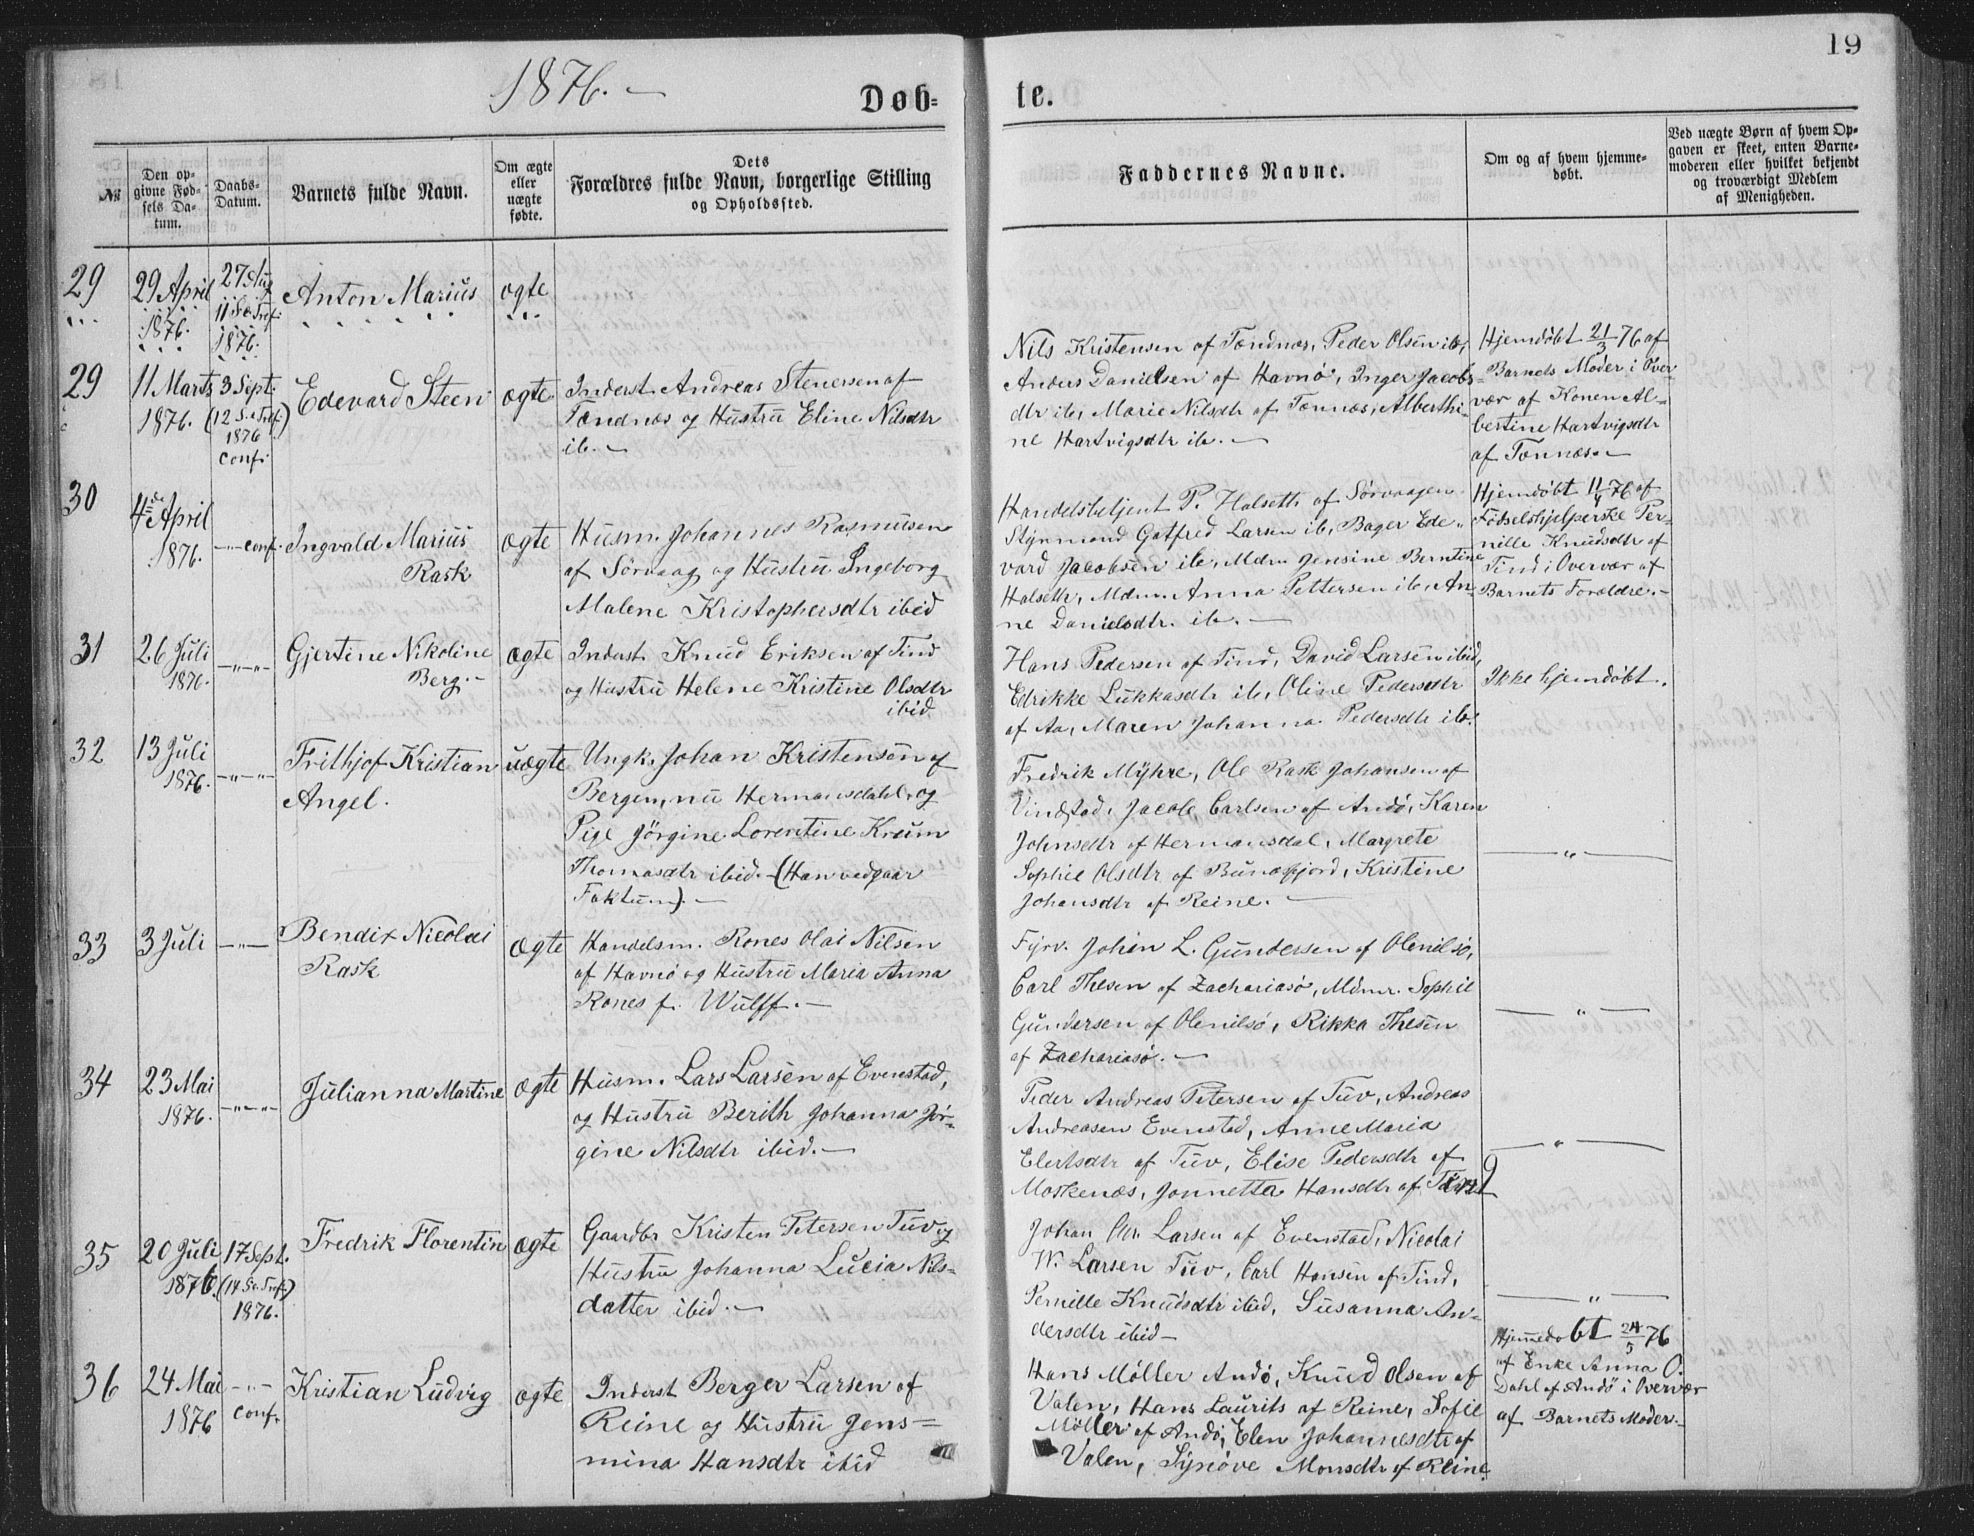 1876. —
Døb=
te.
19
№
Den op-
givne Fød-
sels Da-
tum.
Daabs-
Datum.
Barnets fulde Navn.
Om ægte
eller
uægte
fødte.
Dets
Forældres fulde Navn, borgerlige Stilling
og Opholdssted.
Faddernes Navne.
Om og af hvem hjemme-
døbt.
Ved uægte Børn af hvem Op-
gaven er skeet, enten Barne-
moderen eller hvilket bekjendt
og troværdigt Medlem
af Menigheden.
29
29 April
1876.
27 Aug
11 S. e. Tref.
1876.
Anton Marius
ægte
29
11 Marts
1876.
3 Sept.
(12 S. e. Tref.)
1876
conf.
Edevard Steen
ægte
Inderst. Andreas Stenersen af
Tændnæs og Hustru Eline Nilsdtr
ib. —
Nils Kristensen af Tændnæs, Peder Olsen ib,
Anders Danielsen af Havnø, Inger Jacobs-
dtr ib, Marie Nilsdtr af Tønnæs, Alberthi-
ne Hartvigsdtr ib. —
Hjemdøbt 21/3 76 af
Barnets Moder i Over-
vær af Konen Al-
bertine Hartvigsdtr
af Tønnæs. —
30
4de April
1876.
—"— conf.
Ingvald Marius
Rask
ægte
Husm. Johannes Rasmusen
af Sørvaag og Hustru Ingeborg
Malene Kristophersdtr ibid
Handelsbetjent P. Halseth af Sørvaagen
Styrmand Gotfred Larsen ib, Bager Ede-
vard Jacobsen ib, Mdm Jensine Berntine
Halseth, Mdm. Anna Pettersen ib, An-
ne Danielsdtr. ib. —
Hjemdøbt 11/4 76 af
Fødselshjelperske Per-
nille Knudsdtr af
Tind i Overvær af
Barnets Forældre. —
31
26 Juli
1876.
—"—"—
Gjertine Nikoline
Berg. —
ægte
Inderst. Knud Eriksen af Tind
og Hustru Helene Kristine Olsdtr
ibid
Hans Pedersen af Tind, David Larsen ibid,
Edrikke Lukkasdtr ib, Oline Pedersdtr
af Aa, Maren Johanna Pedersdtr ib.
Ikke hjemdøbt.
32
13 Juli
1876.
—"—"—
Frithjof Kristian
Angel.
uægte
Ungk. Johan Kristensen af
Bergen, nu Hermansdahl, og
Pige Jörgine Lorentine Krum
Thomasdtr ibid. — (Han vedgaar
Faktum). —
Fredrik Myhre, Ole Rask Johansen af
Vindstad, Jacob Carlsen af Andø, Karen
Johnsdtr af Hermansdal, Margrete
Sophie Olsdtr af Bunæsfjord, Kristine
Johansdtr af Reine. —
—"—
33
3 Juli
—"—
Bendix Nicolai
Rask
ægte
Handelsm. Rones Olai Nilsen
af Havnø og Hustru Maria Anna
Rones f. Wulff. —
Fyrv. Johan L. Gundersen af Olenilsø,
Carl Thesen af Zachariasø, Mdmr. Sophie
Gundersen af Olenilsø, Rikka Thesen
af Zachariasø. —
—"—
34
23 Mai
1876.
—"—"—
Julianna Martine
ægte
Husm. Lars Larsen af Evenstad,
og Hustru Berith Johanna Jör-
gine Nilsdtr ibid. —
Peder Andreas Petersen af Tuv, Andreas
Andreasen Evenstad, Anne Maria
Elertsdtr af Tuv, Elise Pedersdtr af
Moskenæs, Jonnetta Hansdtr af Tind
—"—
35
20 Juli
1876.
17 Sept.
(14 S. e. Tref.)
1876.
Fredrik Florentin
ægte
Gaardbr Kristen Petersen Tuv og
Hustru Johanna Lucia Nils-
datter ibid. —
Johan Larsen af Evenstad, Nicolai
W. Larsen Tuv, Carl Hansen af Tind,
Pernille Knudsdtr ibid, Susanna An-
dersdtr ibid —
—"—
36
24 Mai
1876
—"—
conf.
Kristian Ludvig
ægte
Inderst Berger Larsen af
Reine og Hustru Jens=
mina Hansdtr ibid
Hans Møller Andø, Knud Olsen af
Valen, Hans Laurits af Reine, Sofie
Møller af Andø, Elen Johannesdtr af
Valen, Synøve Monsdtr af Reine
Hjemmedøbt 24/5 76
af Enke Anna O.
Dahl af Andø i Overvær
af Barnets Moder. —